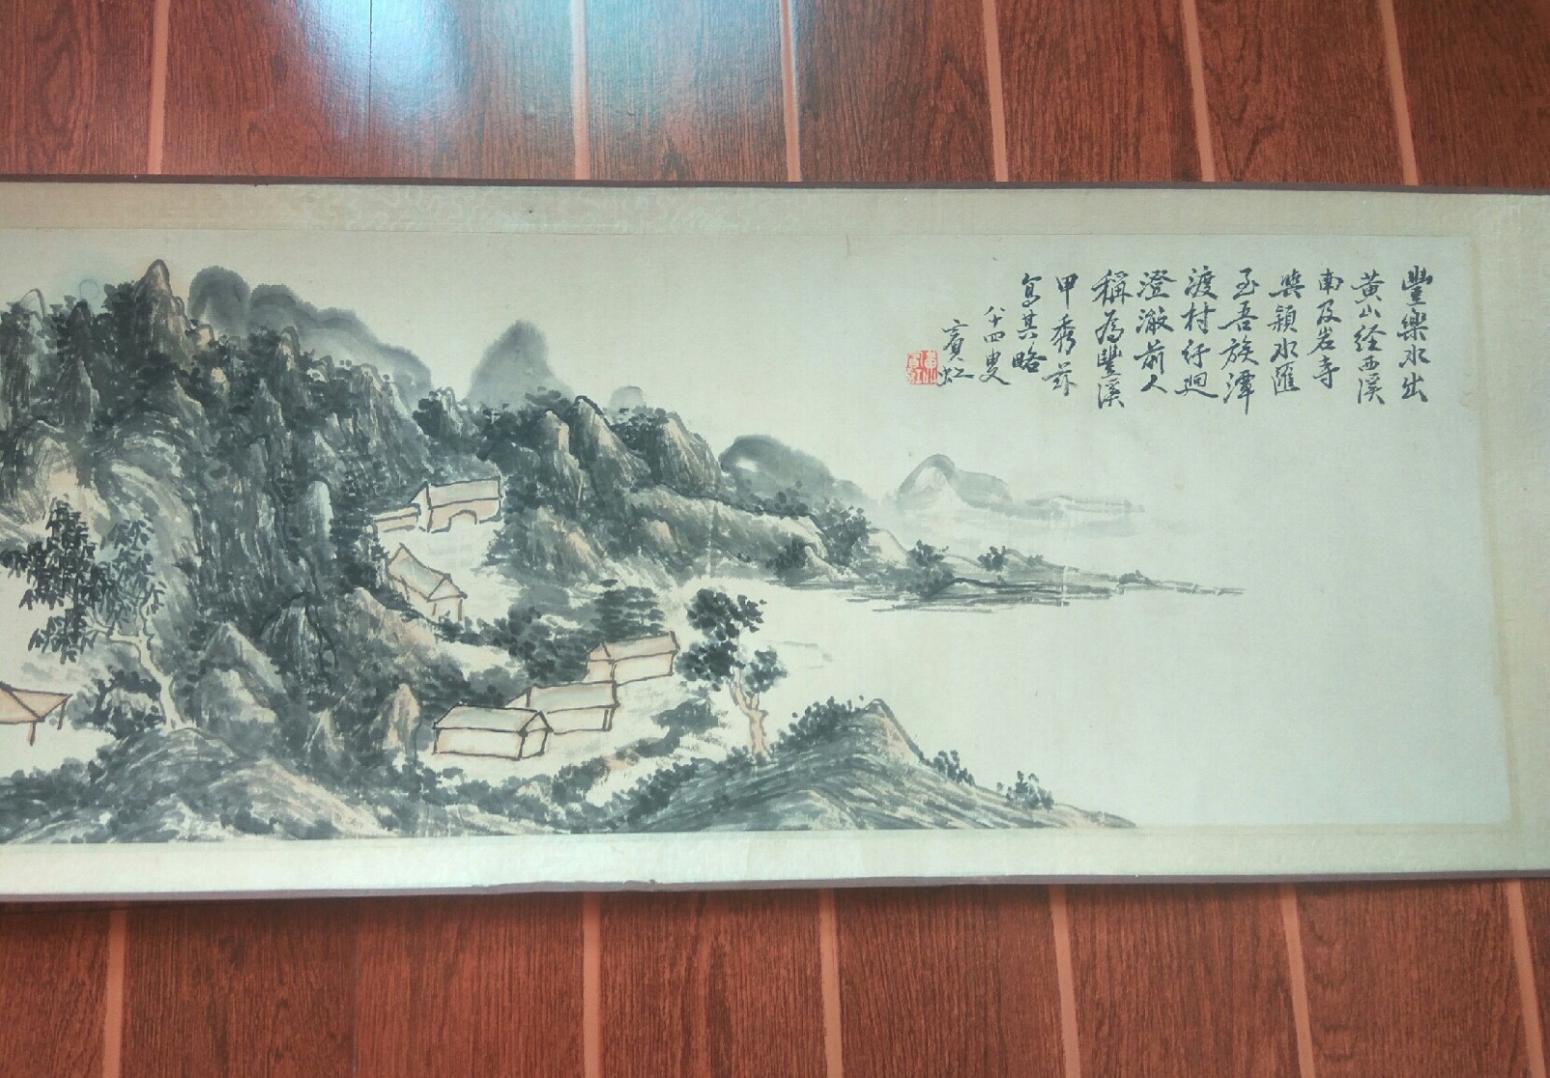 豐樂水出
黃山經西溪
南及岩寺
與穎水匯
至吾族潭
渡村紆迴
澄澈前人
稱為豐溪
甲秀茲
寫其略
八十四叟
賓虹